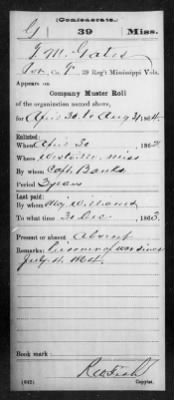 (Confederate.)
G 39 Miss.
J. M. Gates
Co. G, 39 Reg't Mississippi Vols.
Appears on
Company Muster Roll
of the organization named above,
for April 30 to Aug 31, 1864.
Enlisted:
When April 30, 186
Where Westville, Miss
By whom Capt. Banks
Period 3 years
Last paid:
By whom Maj. Williams
To what time 31 Dec, 1863.
Present or absent Absent
Remarks: Prisoner of war since
July 4, 1864.
Book mark:
(642) Copyist.